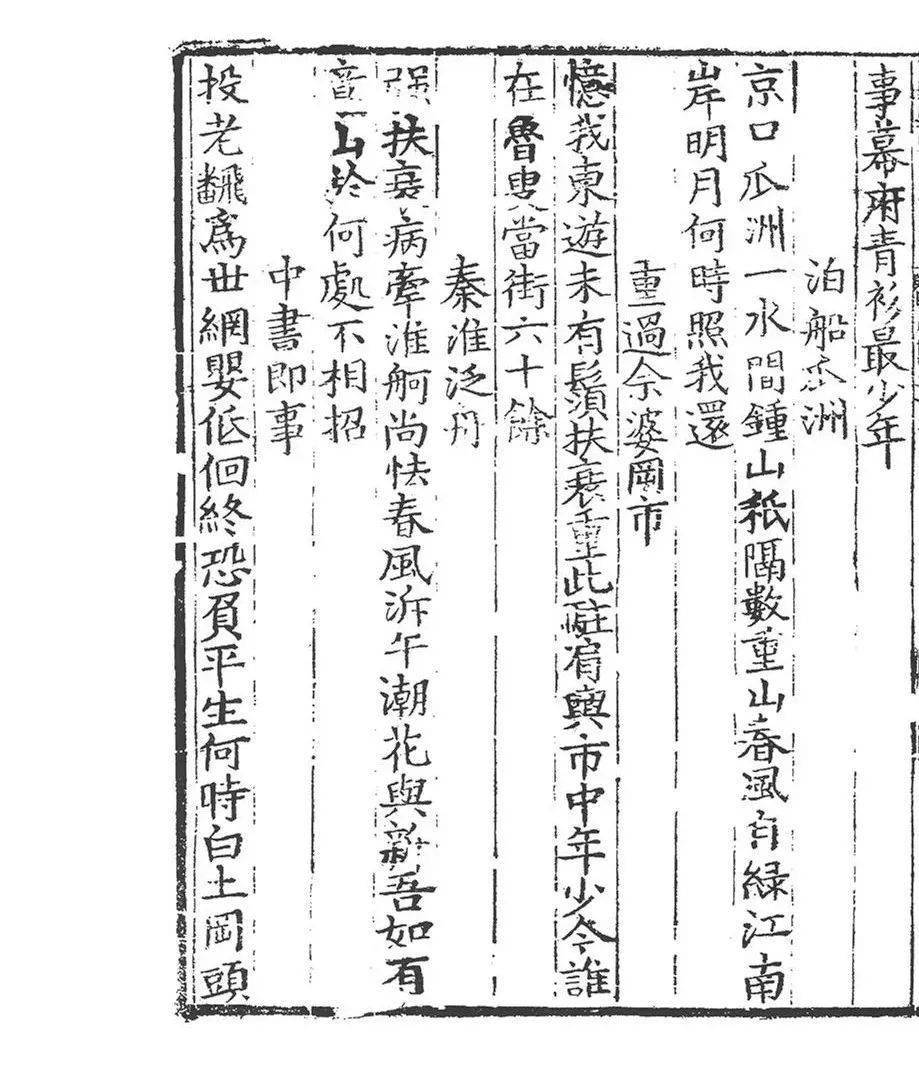 事幕府青衫最少年
泊船瓜洲
京口瓜洲一水間鍾山秖隔數重山春風自緑江南
岸明月何時照我還
重過余婆岡市
憶我東遊未有鬚扶衰重此駐肩輿市中年少今誰
在魯叟當街六十餘
秦淮泛舟
强扶衰病牽淮舸尚怯春風泝午潮花與新吾如有
意山於何處不相招
中書即事
投老飜爲世網嬰低佪終恐負平生何時白土岡頭